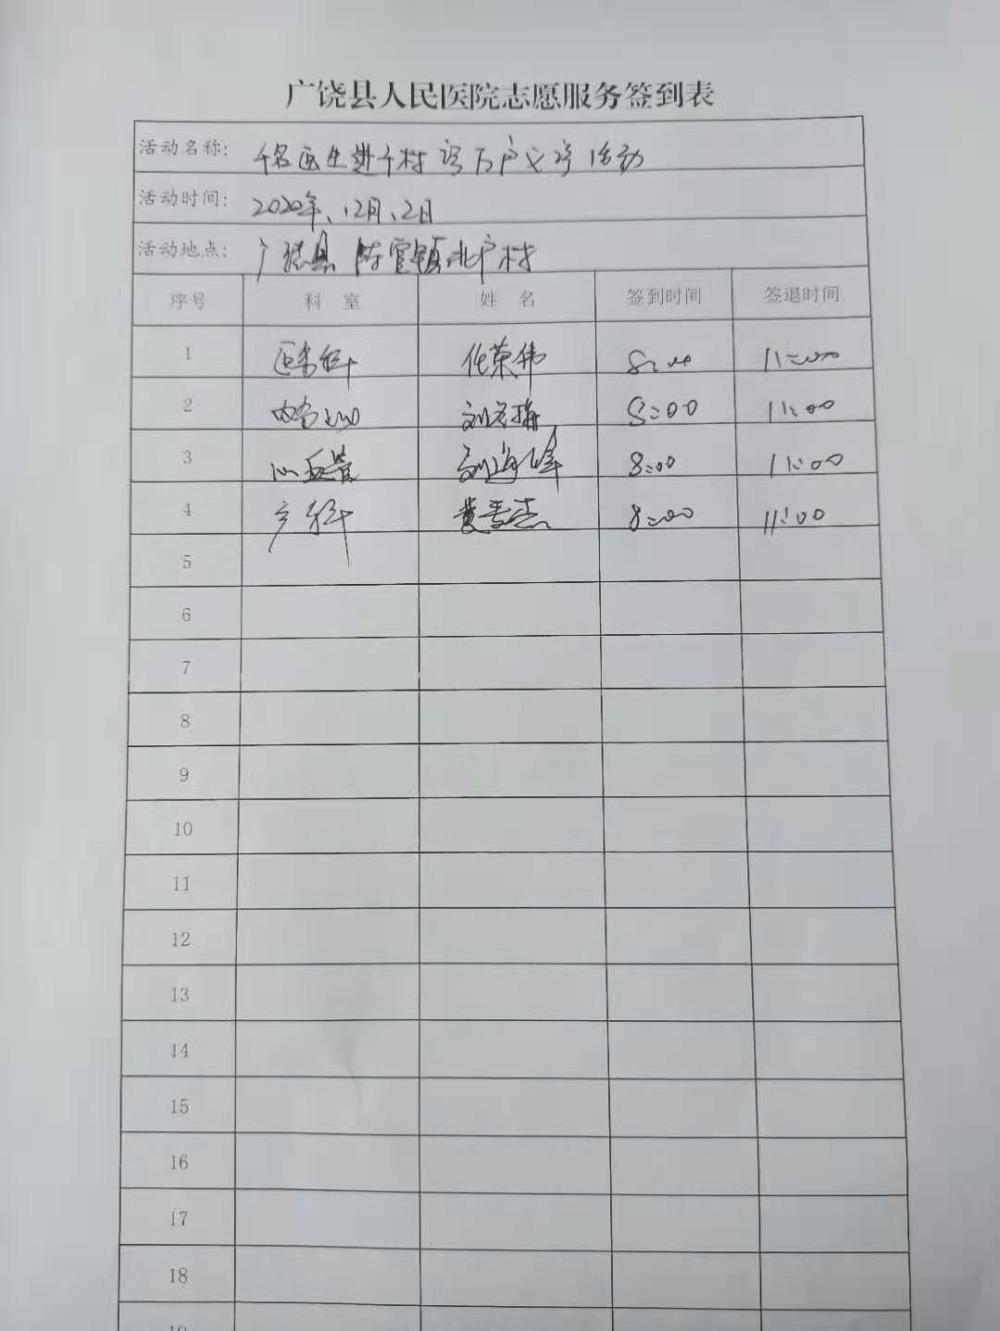 广饶县人民医院志愿服务签到表
活动名称: 千名医生进千村 访万户义诊活动
活动时间: 2020年、12月、2日
活动地点: 广饶县 陈官镇北户村
序号 科室 姓名 签到时间 签退时间
1 任荣伟 8:00 11:00
2 刘 梅 8:00 11:00
3 心血管 刘海峰 8:00 11:00
4 产科 黄 杰 8:00 11:00
5
6
7
8
9
10
11
12
13
14
15
16
17
18
19